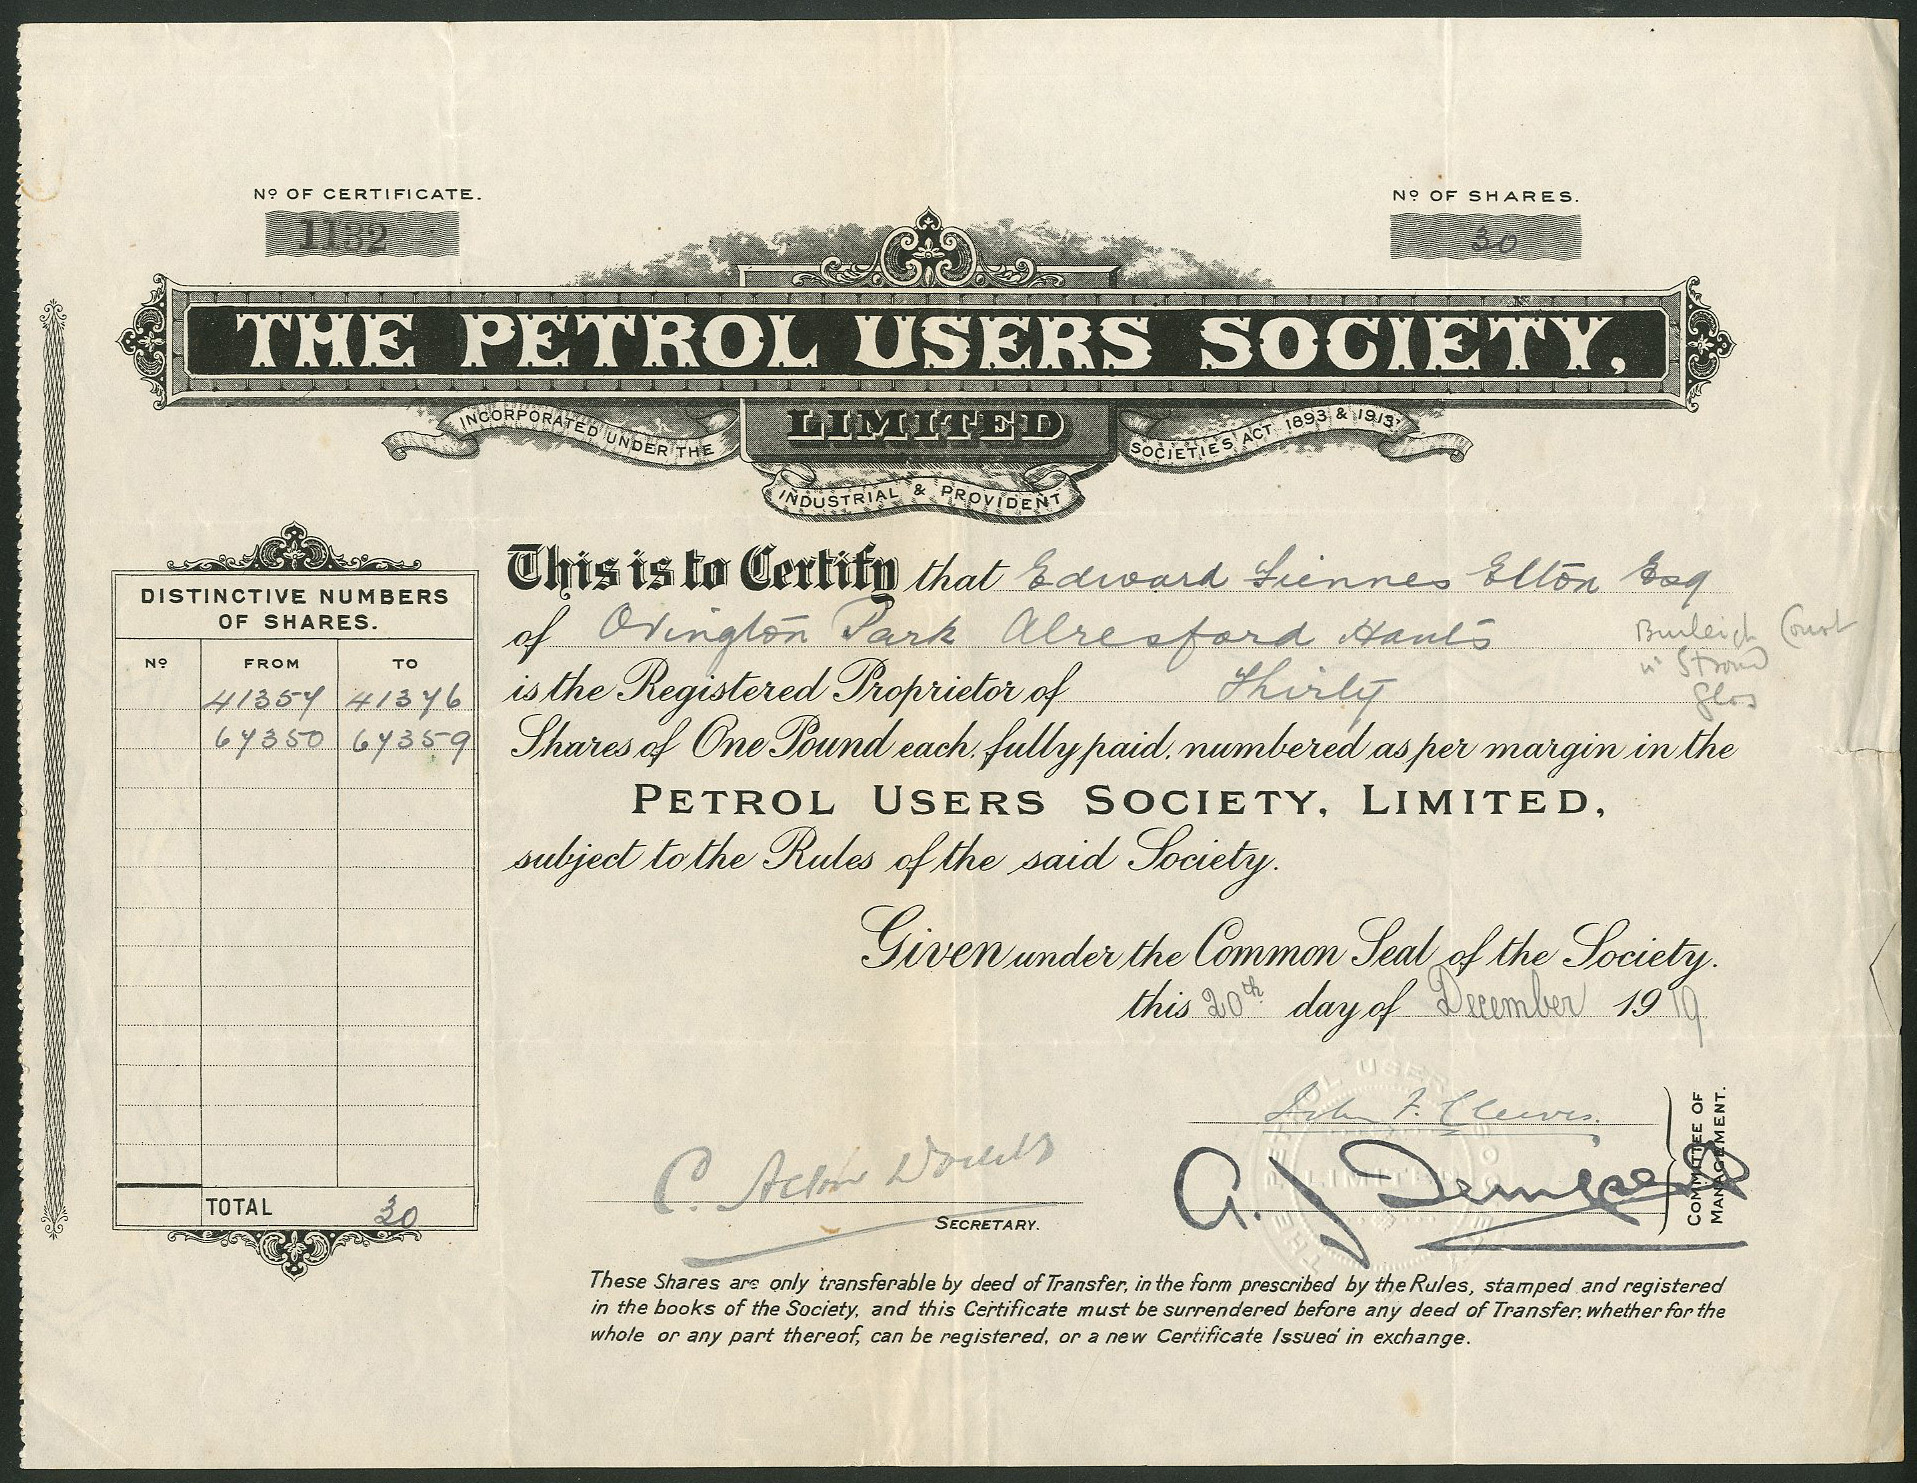 Nº OF CERTIFICATE.
1132
Nº OF SHARES.
30
THE PETROL USERS SOCIETY,
LIMITED
INCORPORATED UNDER THE
INDUSTRIAL & PROVIDENT
SOCIETIES ACT 1893 & 1913.
DISTINCTIVE NUMBERS
OF SHARES.
Nº FROM TO
41357 41376
67350 67359
TOTAL 30
This is to Certify that Edward Fiennes Elton Esq
of Ovington Park Alresford Hants
Burleigh Court
nr Stroud
Glos
is the Registered Proprietor of Thirty
Shares of One Pound each, fully paid, numbered as per margin in the
PETROL USERS SOCIETY, LIMITED,
subject to the Rules of the said Society.
Given under the Common Seal of the Society.
this 20th day of December 1919
John F. Cleeves.
C. Acton
SECRETARY.
A. J.
COMMITTEE OF
MANAGEMENT.
THE PETROL USERS SOCIETY
LIMITED
These Shares are only transferable by deed of Transfer, in the form prescribed by the Rules, stamped and registered
in the books of the Society, and this Certificate must be surrendered before any deed of Transfer, whether for the
whole or any part thereof, can be registered, or a new Certificate Issued in exchange.